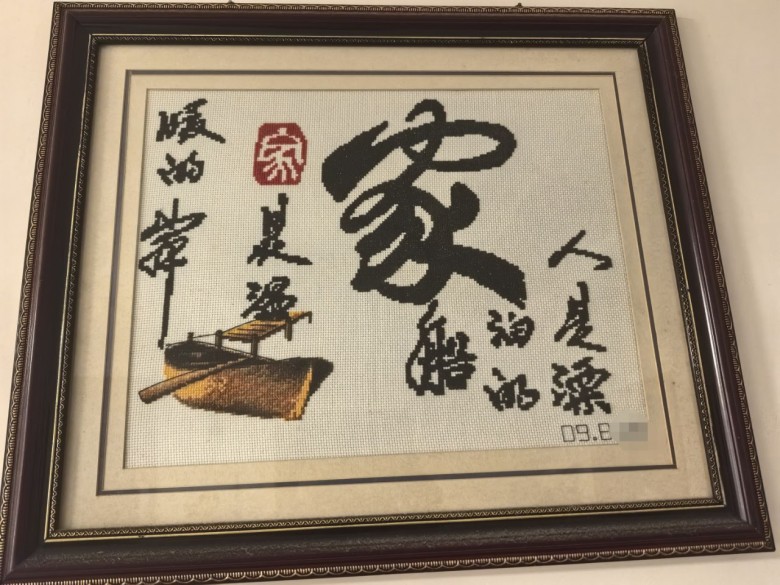 人是漂
泊的
船
家
家
是温
暖的岸
09.